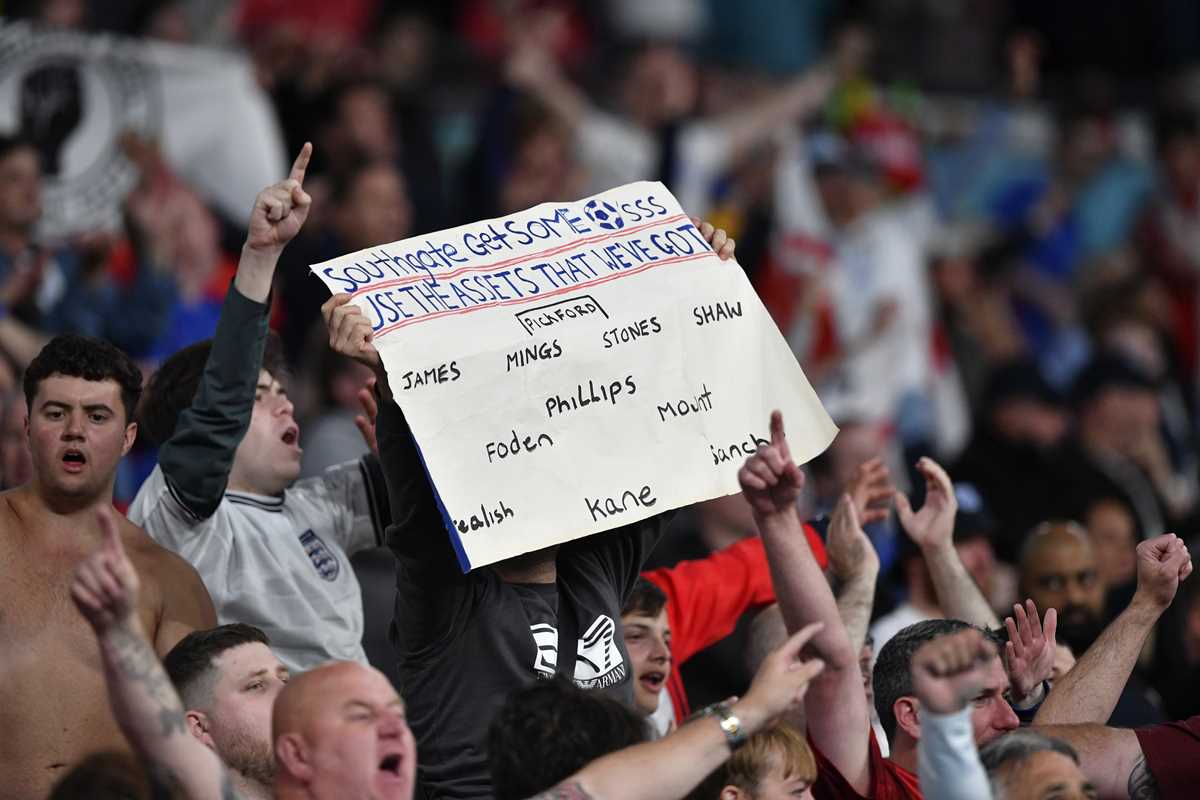 Southgate Get SOME SSS
USE THE ASSETS THAT WE'VE GOT
PICKFORD
JAMES MINGS STONES SHAW
PHILLIPS
Foden Mount
Sanch
realish Kane
ARMAN